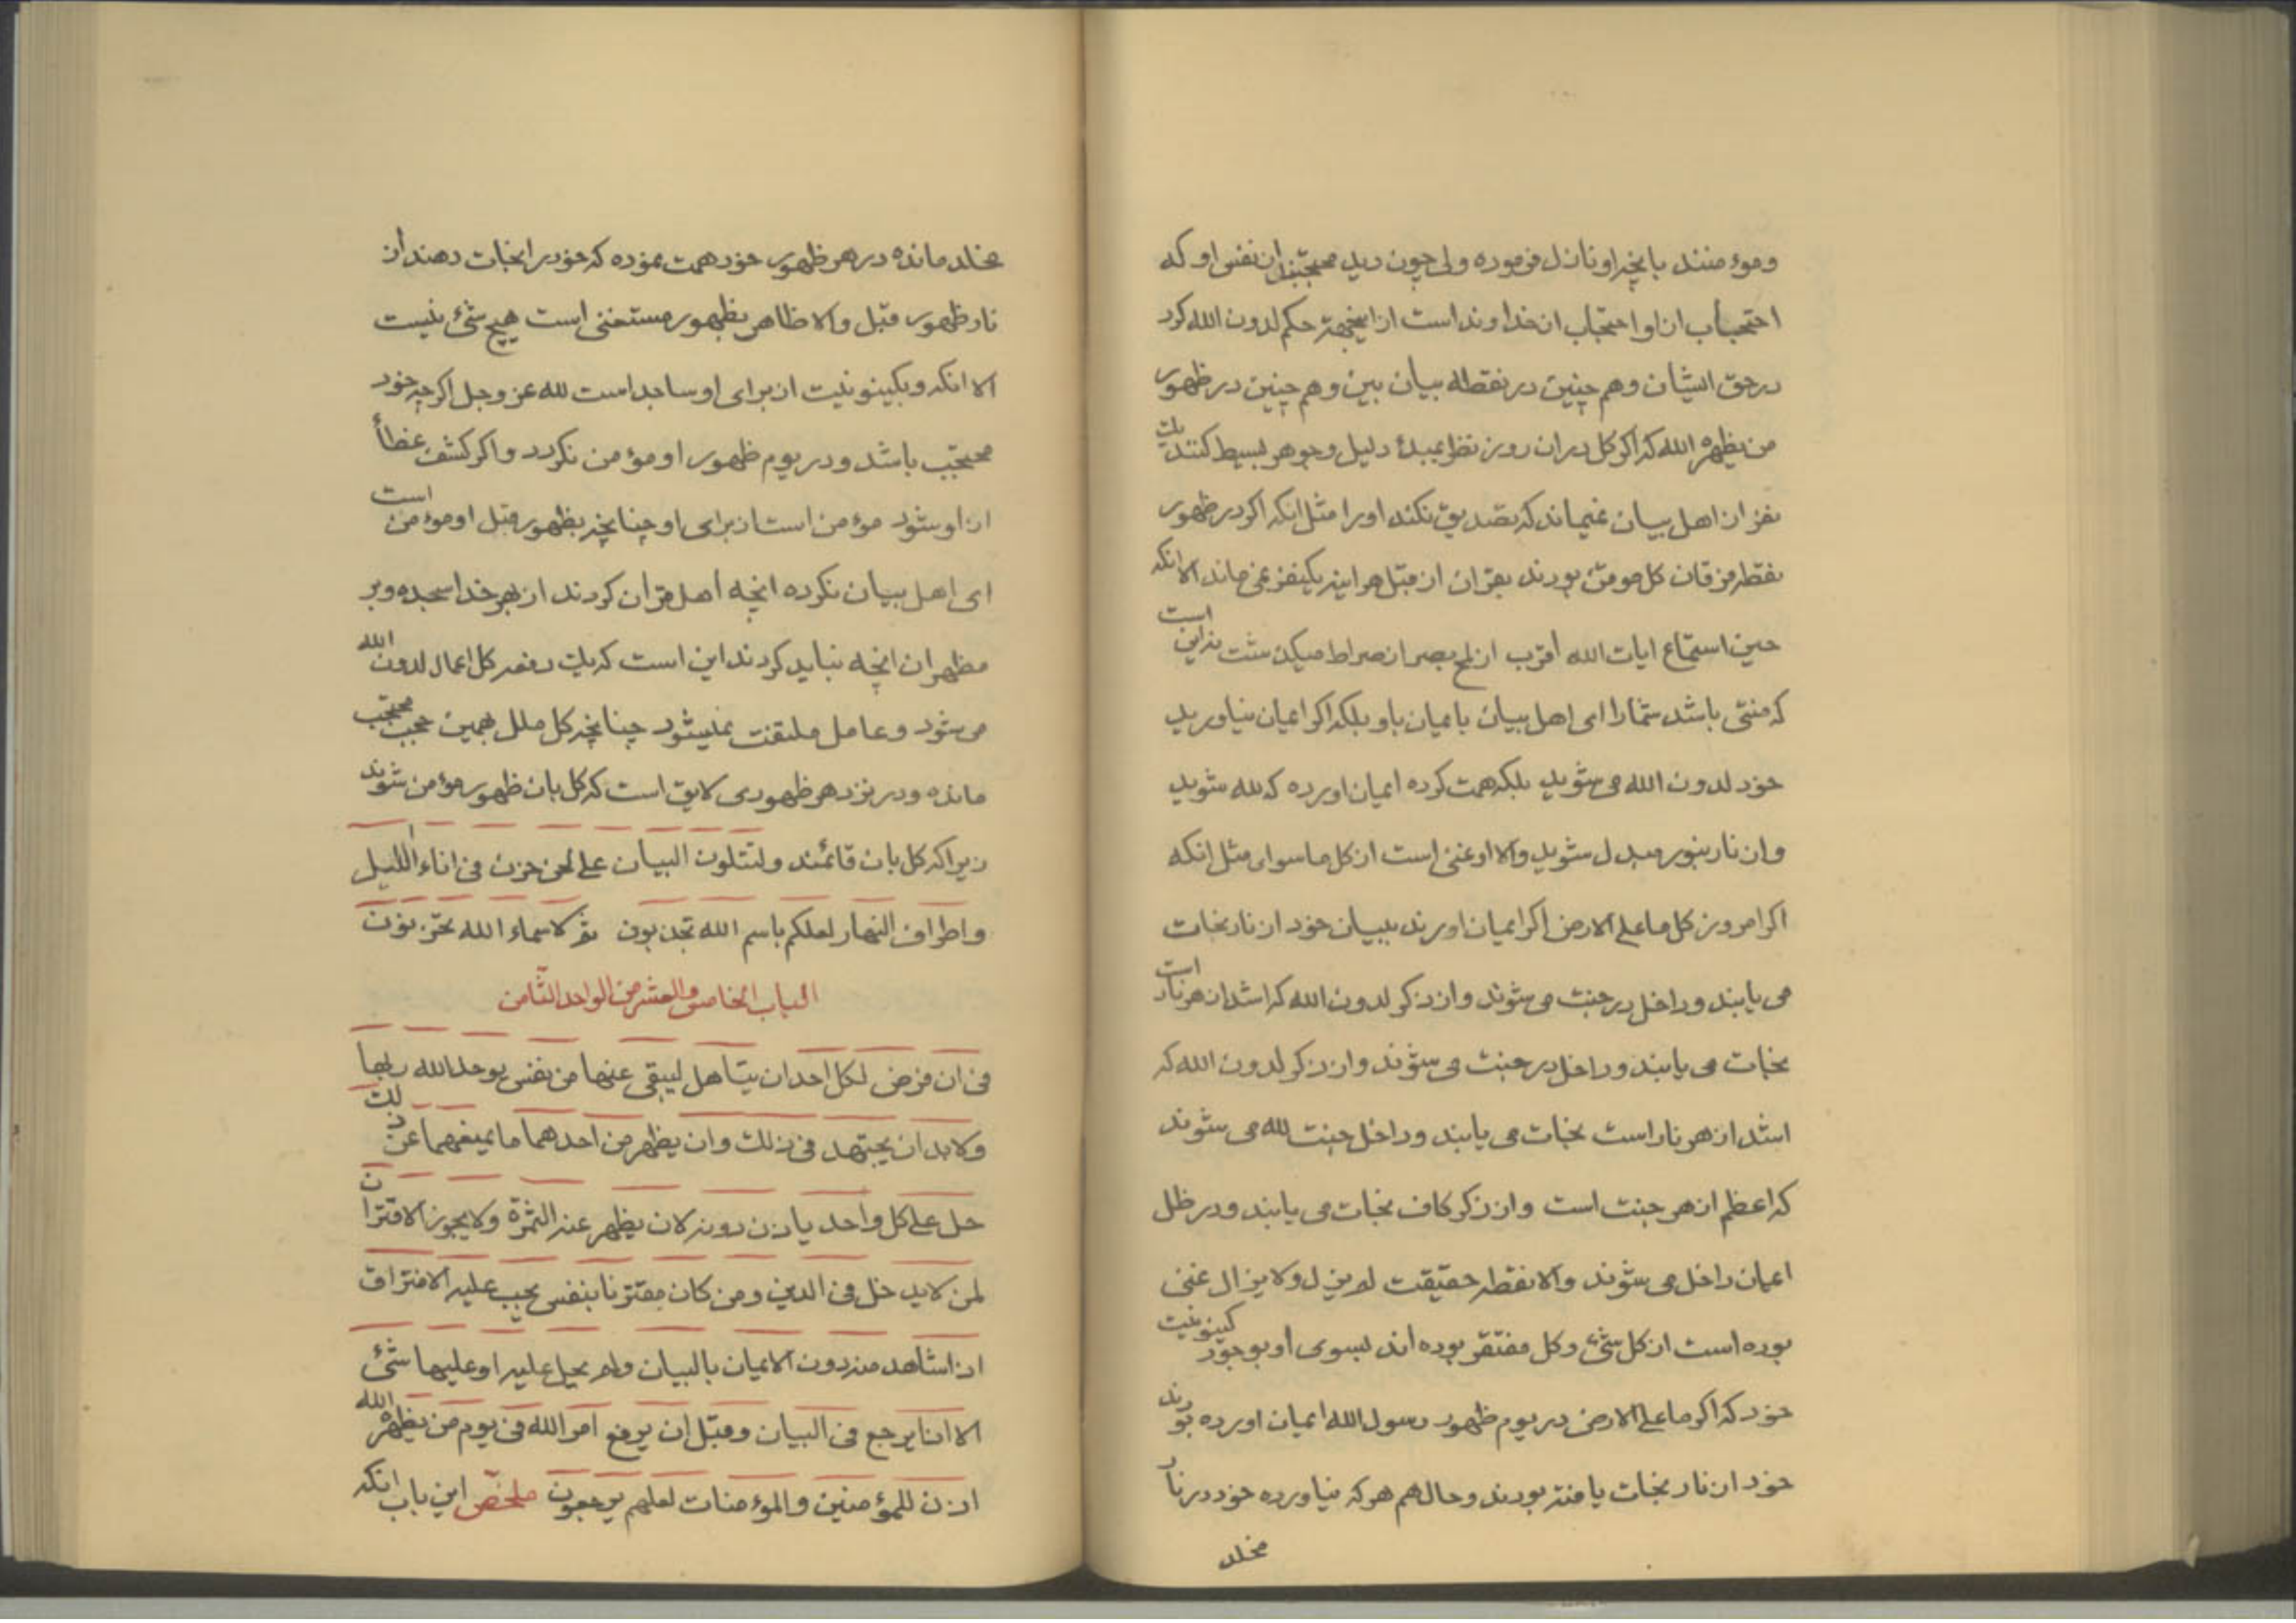 ومؤمنند بانچه او نازل فرموده ولی چون دید محتجبند از نفس او که
احتجاب از او احتجاب از خداوند است از اینجهة حکم لدون الله کرد
در حق ایشان و هم چنین در نقطه بیان بین و هم چنین در ظهور
من یظهره الله که اکر کل در ان روز نظر بمبدء دلیل و جوهر بسیط کنند یک
نفر از اهل بیان نمیماند که تصدیق نکند او را مثل انکه اکر در ظهور
نقطه فرقان کل مومن بودند بقران از قبل هراینه یکنفر نمی ماند الا انکه
حین استماع ایات الله اقرب از لمح بصر از صراط میکذشت نه این است
که منتی باشد شما را ای اهل بیان بایمان باو بلکه اکر ایمان نیاورید
خود لدون الله می شوید بلکه همت کرده ایمان اورده که لله شوید
وان نار بنور مبدل شوید والا او غنی است از کل ما سوای مثل انکه
اکر امروز کل ما علی الارض اکر ایمان اورند ببیان خود از نار نجات
می یابند و داخل در جنت می شوند و از ذکر لدون الله که اشد از هر نار است
نجات می یابند و داخل در جنت می شوند و از ذکر لدون الله که
اشد از هر نار است نجات می یابند و داخل جنت لله می شوند
که اعظم از هر جنت است و از ذکر کاف نجات می یابند و در ظل
ایمان داخل می شوند والا نقطه حقیقت لم یزل ولا یزال غنی
بوده است از کل شئ و کل مفتقر بوده اند بسوی او بوجود کینونیت
خود که اکر ما علی الارض در یوم ظهور رسول الله ایمان اورده بودند
خود از نار نجات یافته بودند و حال هم هر که نیاورده خود در نار
مخلد
مخلد مانده در هر ظهور خود همت نموده که خود را نجات دهند از
نار ظهور قبل والا ظاهر بظهور مستغنی است هیچ شئ نیست
الا انکه و بکینونیت از برای او ساجد است لله عز وجل اکرچه خود
محتجب باشد و در یوم ظهور او مؤمن نکردد و اکر کشف غطأ
از او شود مؤمن است از برای او چنانچه بظهور قبل او مؤمن است
ای اهل بیان نکرده انچه اهل قران کردند از بهر خدا سجده و بر
مظهر ان انچه نباید کردند این است که یک دفعه کل اعمال لدون الله
می شود و عامل ملتفت نمیشود چنانچه کل ملل بهمین حجب محتجب
مانده و در نزد هر ظهوری لایق است که کل بان ظهور مؤمن شوند
زیرا که کل بان قائمند ولتتلون البیان علی لحن حزن فی اناء اللیل
واطراف النهار لعلکم باسم الله تجذبون ثم لاسماء الله تحزنون
الباب الخامس والعشر من الواحد الثامن
فی ان فرض لکل احد ان یتاهل لیبقی عنها من نفس یوحد الله ربها
ولابد ان یجتهد فی ذلک وان یظهر من احدهما ما یمنعهما عن ذلک
حل علی کل واحد باذن دونه لان یظهر عنه الثمرة ولا یجوز الاقتران
لمن لا یدخل فی الدین ومن کان مقترنا بنفس یجب علیه الافتراق
اذا شاهد منه دون الایمان بالبیان ولم یحل علیه او علیها شئ
الا اذا یرجع فی البیان وقبل ان یرفع امر الله فی یوم من یظهره الله
اذن للمؤمنین والمؤمنات لعلهم یرجعون ملخص این باب انکه